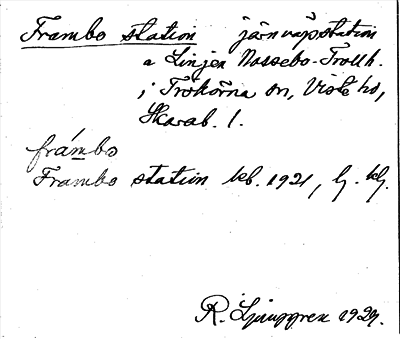 Frambo station järnvägsstation
å Linjen Nossebo-Trollh.
i Trökörna sn, Viste hd,
Skarab. l.
frámbo
Frambo station kb. 1921, lj. kg.
R. Ljunggren 1929.